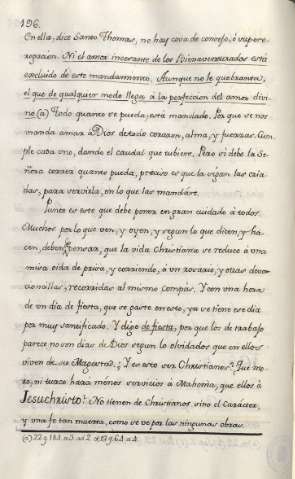 196.
En ella, dice Santo Thomas, no hay cosa de consejo, ô supere-
rogacion. Ni el amor incesante de los Bienaventurados está
excluido de este mandamiento. Aunque no le quebranta,
el que de qualquier modo llega à la perfeccion del amor divi-
no (a) Todo quanto se pueda, está mandado. Por que se nos
manda amar a Dios de todo corazon, alma, y fuerzas. Cum-
ple cada uno, dando el caudal que tubiere. Pero si debe la Se-
ñora correr quanto pueda, preciso es que la sigan las cria-
das, para servirla, en lo que las mandáre.
Punto es este que debe poner en gran cuidado à todos.
Muchos por lo que ven, y oyen, y segun lo que dicen y ha-
cen, deben pensar, que la vida Christiana se reduce à una
misa oida de priesa, y corriendo, à un rosario, y otras devo-
cioncillas, recorridas al mismo compas. Y con una hora
de un dia de fiesta, que se gaste en esto, ya se tiene ese dia
por muy santificado. Y digo de fiesta, por que los de trabajo
parece no son dias de Dios segun lo olvidados que en ellos
viven de su Magestad. ¿Y estos son Christianos? Que mo-
ro, ni turco hará menos servicios à Mahoma, que ellos à
Jesuchristo! No tienen de Christianos sino el Carácter,
y una fe tan muerta, como se ve por las ningunas obras.
(a) 22 q 184 a 3 ad 2